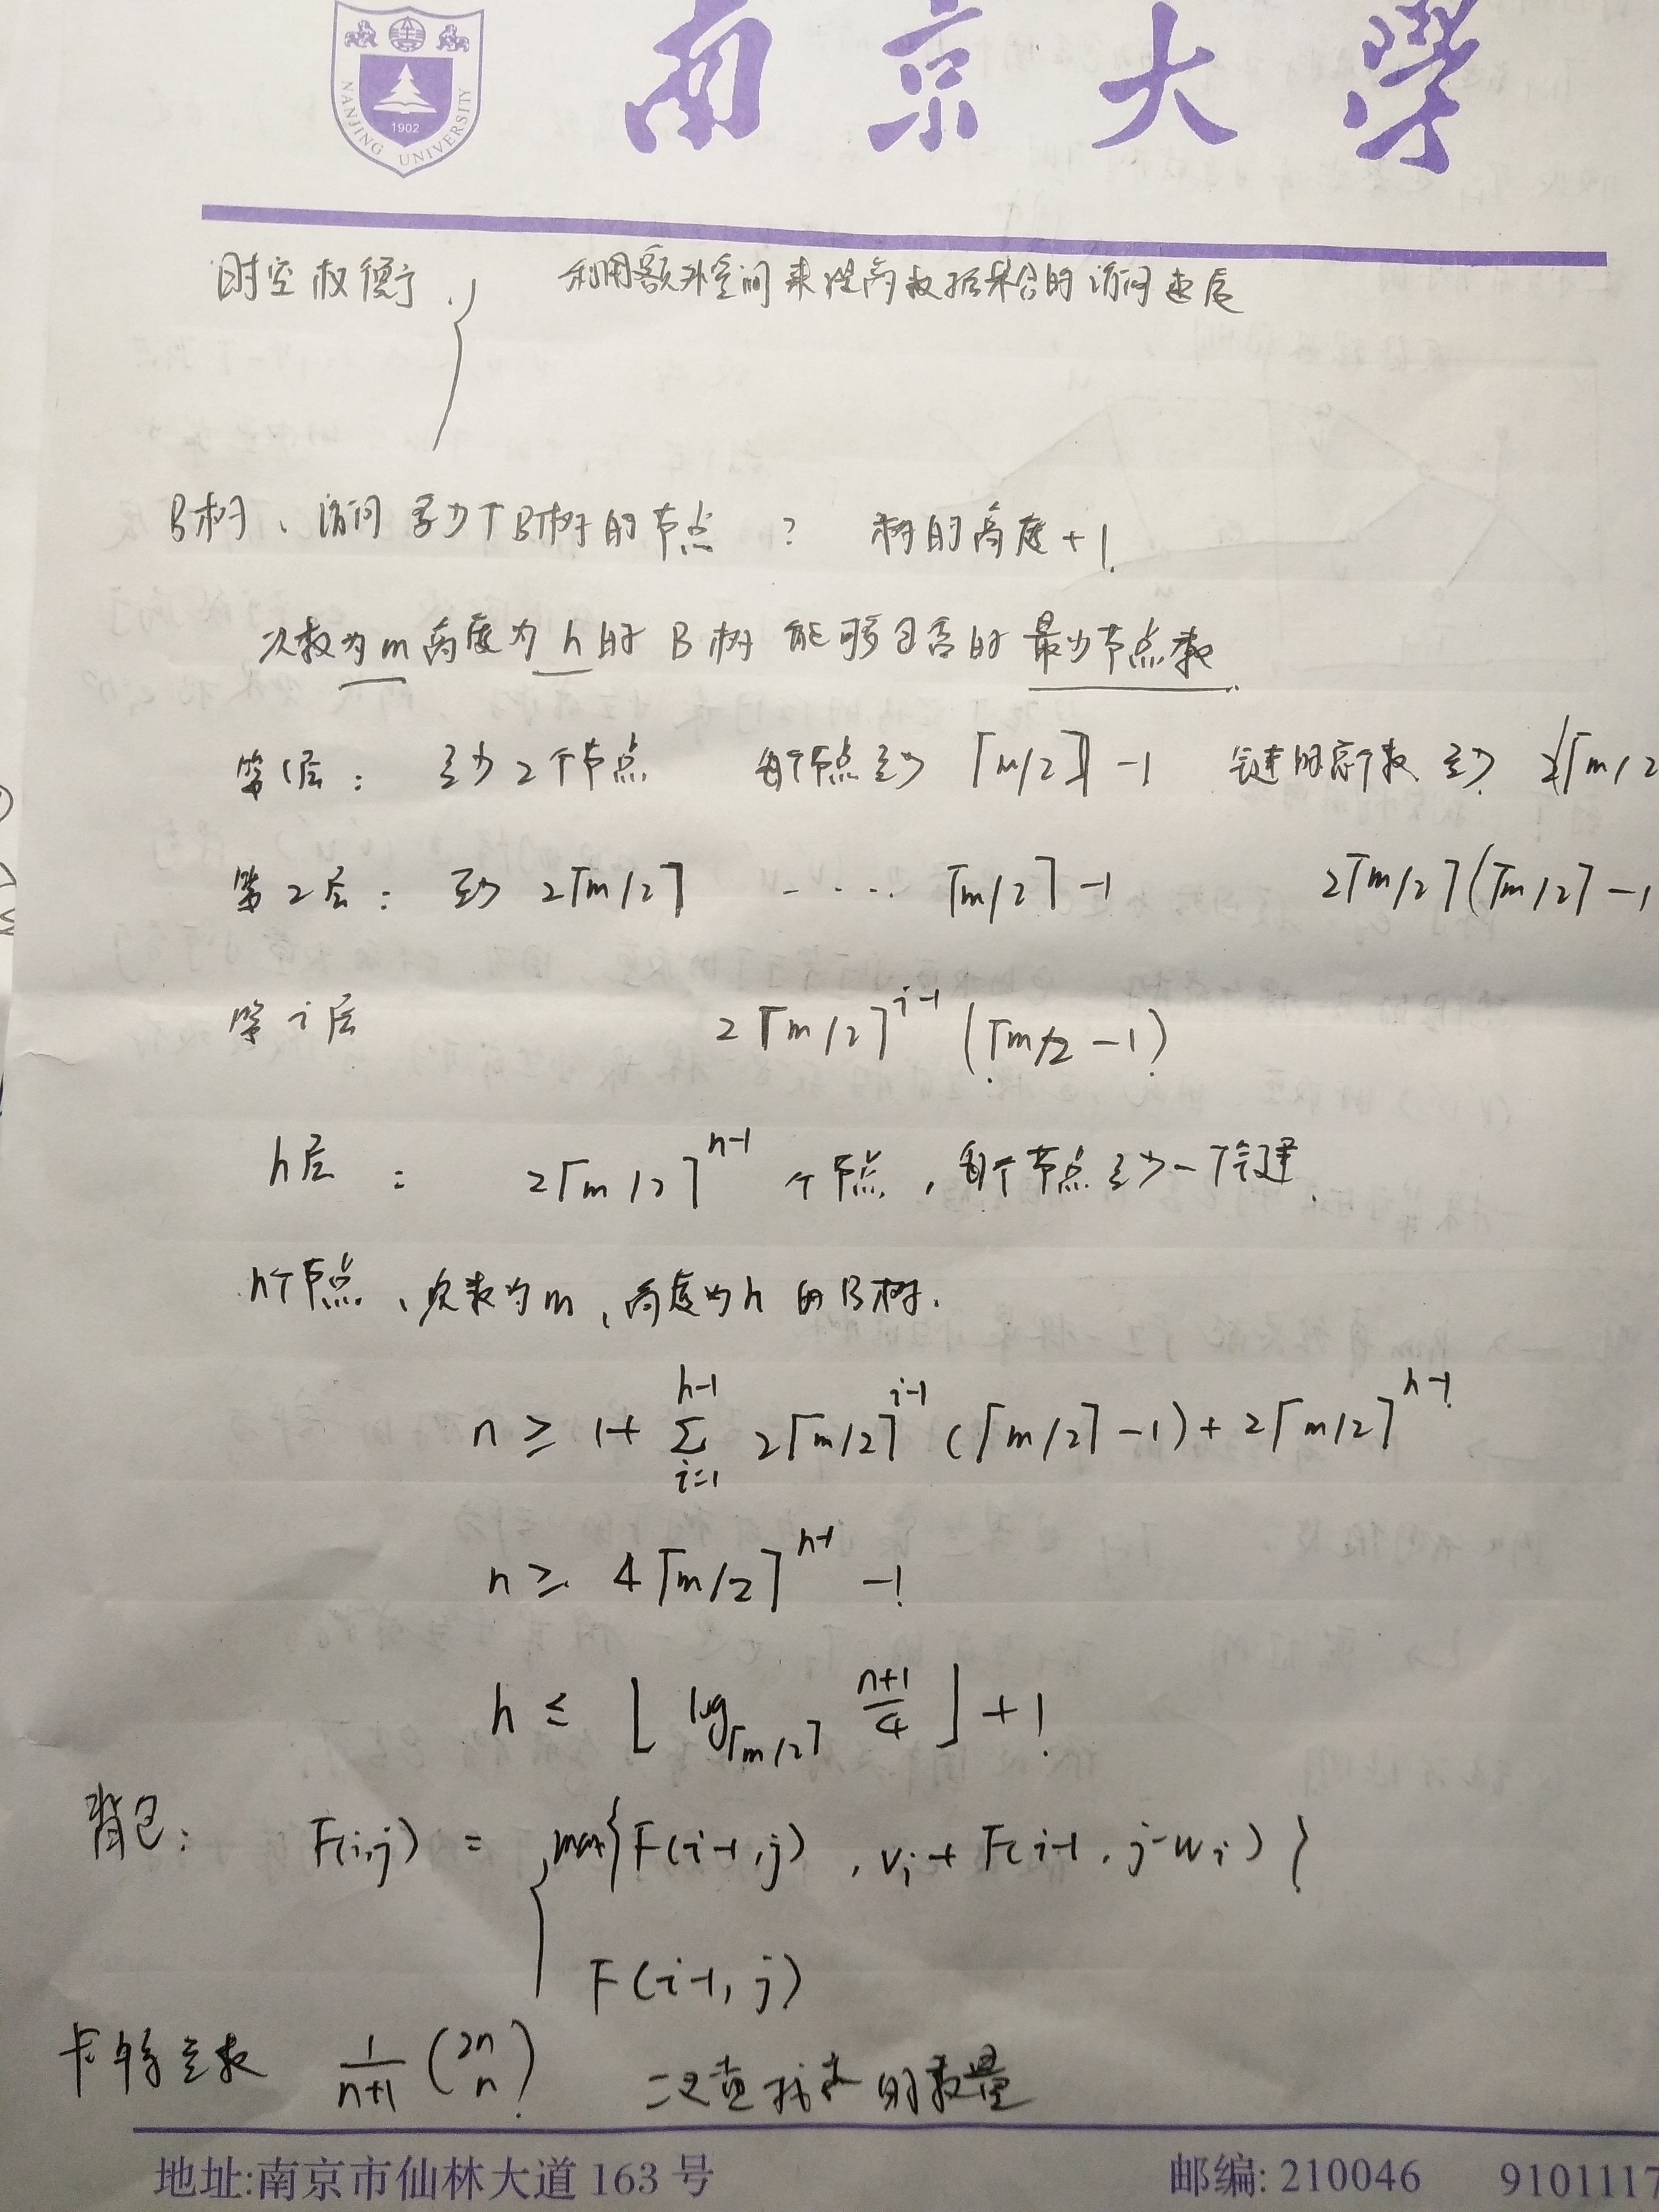 南京大学
NANJING UNIVERSITY
1902
时空权衡 { 利用额外空间来提高数据集合的访问速度
B树、访问多少个B树的节点 ? 树的高度+1.
次数为m高度为h的B树能够包含的最少节点数.
第1层: 至少2个节点 每个节点至少 ⌈m/2⌉-1 键的总个数至少 2(⌈m/2
第2层: 至少 2⌈m/2⌉ ····· ⌈m/2⌉-1 2⌈m/2⌉(⌈m/2⌉-1
第i层 2⌈m/2⌉^{i-1} (⌈m/2-1)
h层 : 2⌈m/2⌉^{h-1} 个节点, 每个节点至少一个键.
n个节点、次数为m、高度为h的B树.
n ≥ 1+ ∑_{i=1}^{h-1} 2⌈m/2⌉^{i-1} (⌈m/2⌉-1)+2⌈m/2⌉^{h-1}
n ≥ 4⌈m/2⌉^{h-1} -1
h ≤ ⌊ log_{⌈m/2⌉} \frac{n+1}{4} ⌋+1
背包: F(i,j) = { max{F(i-1,j), v_i+F(i-1, j-w_i)}
F(i-1, j)
卡特兰数 \frac{1}{n+1} \binom{2n}{n} 二叉查找树的数量
地址:南京市仙林大道163号 邮编: 210046 9101117